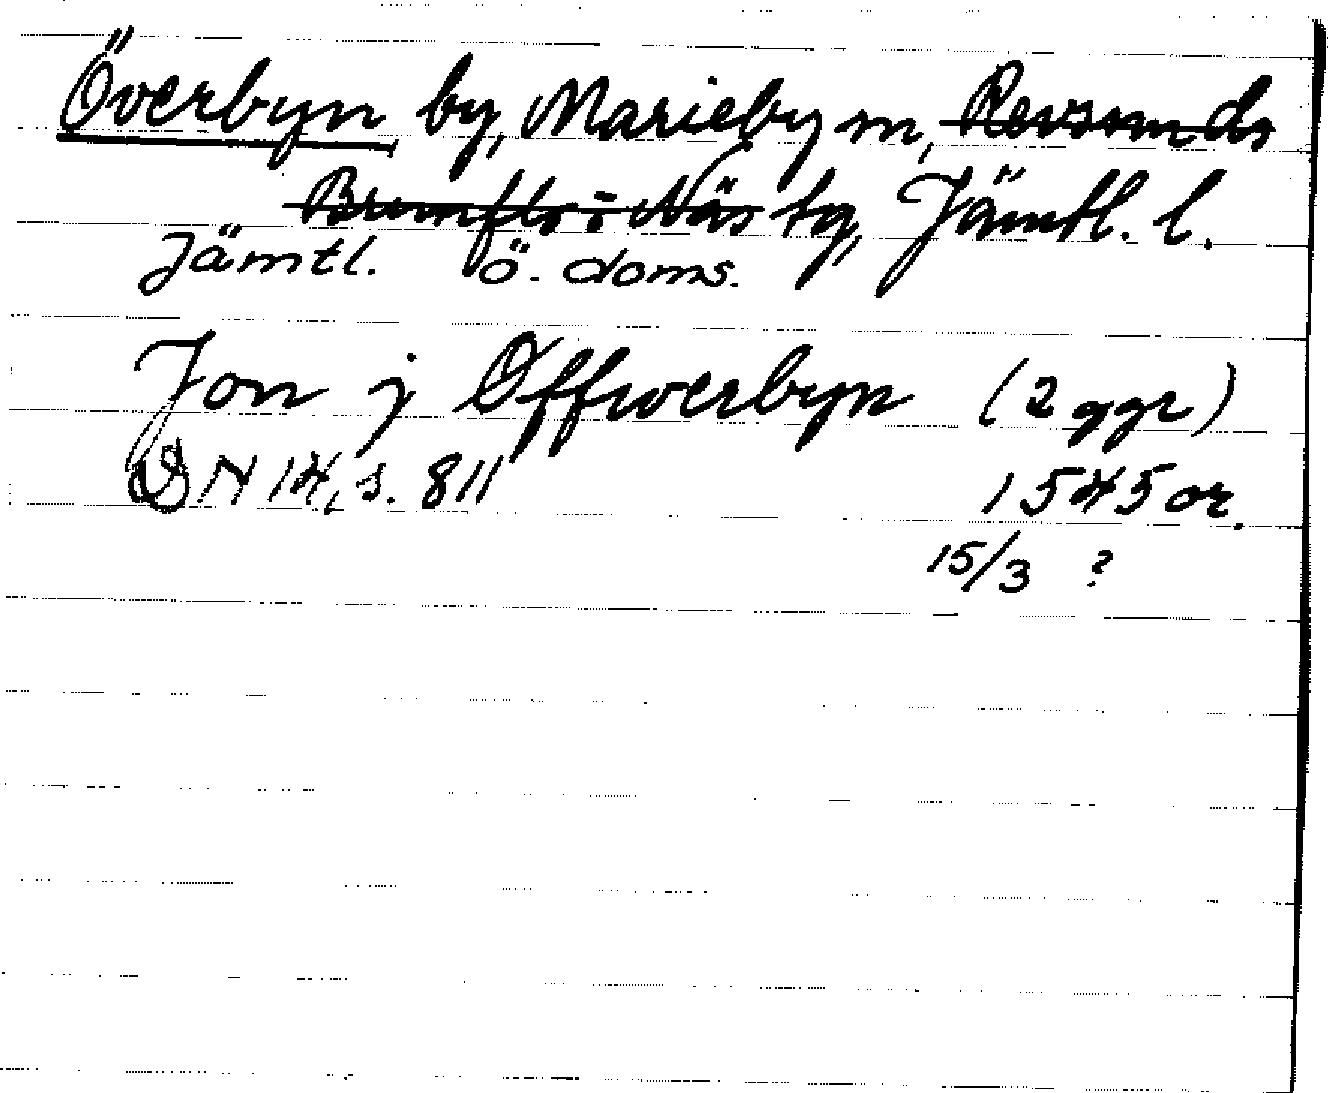 Överbyn by, Marieby sn, Revsunds
Brunflo o Näs tg, Jämtl. l.
Jämtl. ö. doms.
Jon j Øffwerbyn (2 ggr)
DN 14, s. 811 1545 or.
15/3 ?